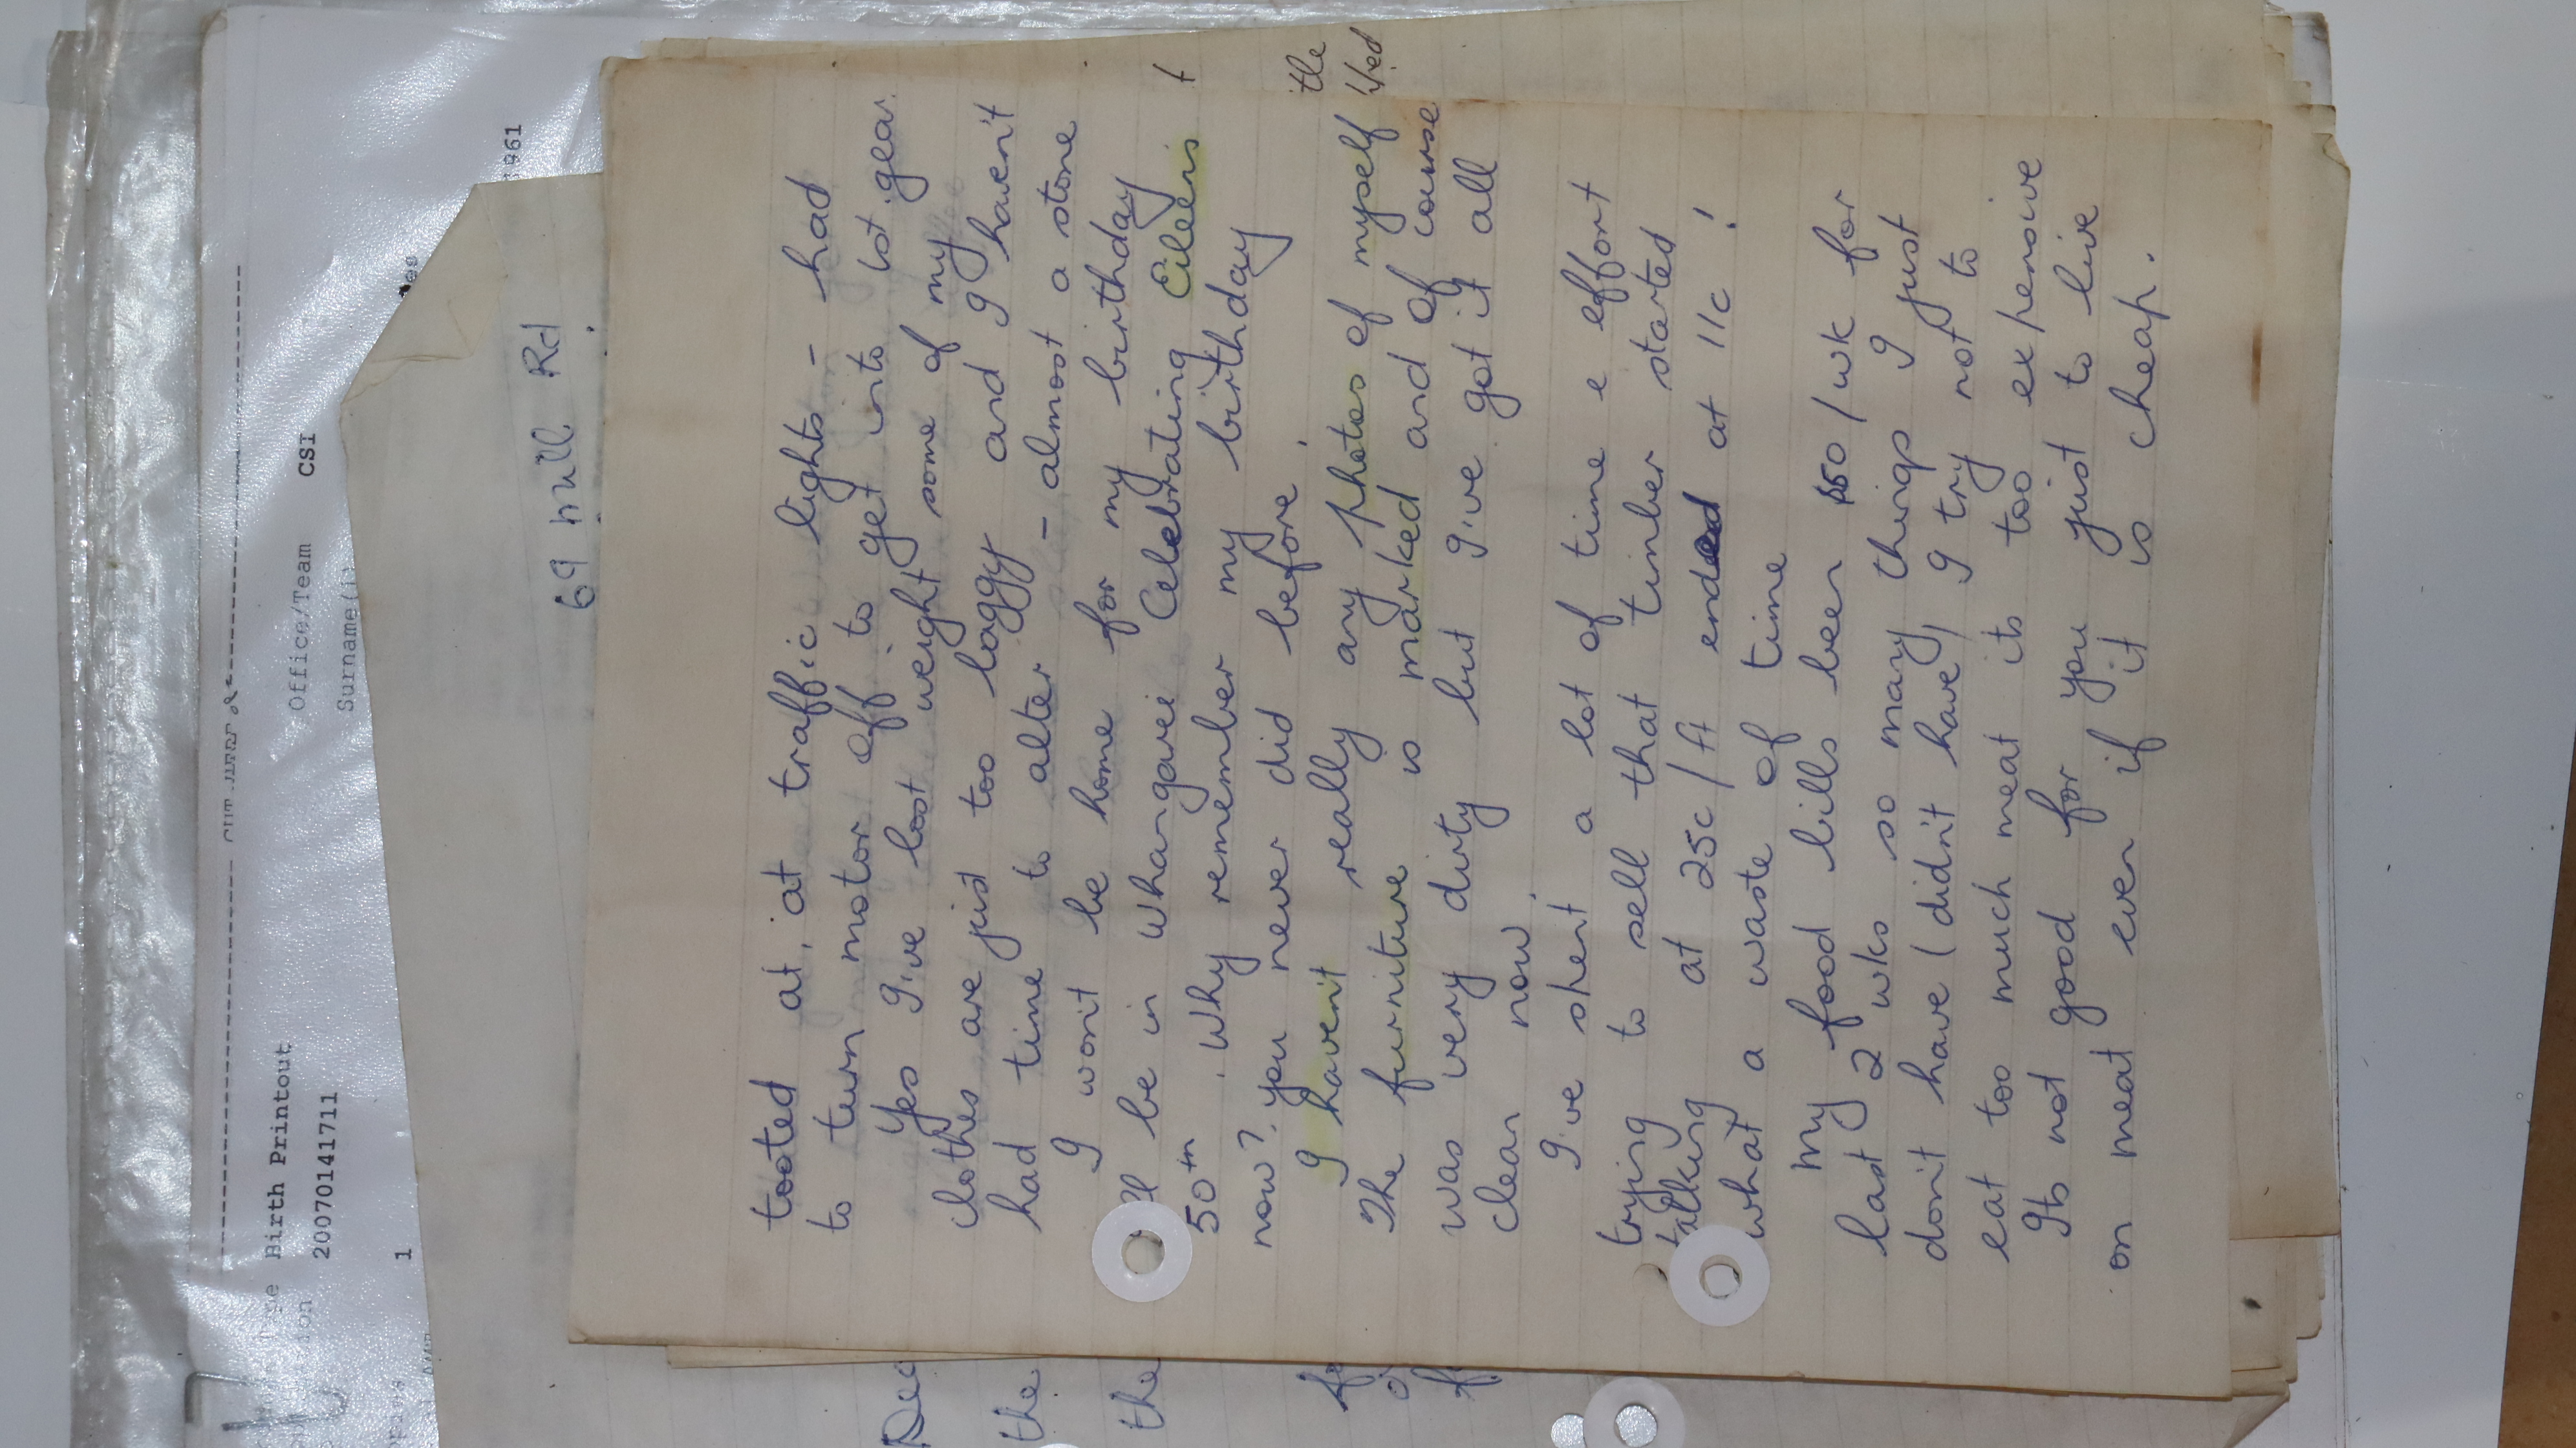 Birth Printout
20070141711
1
Office/Team CSI
Surname(s)
961
69 Mill Rd
tooted at, at traffic lights - had
to turn motor off to get into 1st gear.
Yes I've lost weight some of my
clothes are just too baggy and I haven't
had time to alter - almost a stone
I won't be home for my birthday
I'll be in Whangarei Celebrating Eileen's
50th. Why remember my birthday
now? you never did before.
I haven't really any photos of myself
The furniture is marked and of course
was very dirty but I've got it all
clean now.
I've spent a lot of time e effort
trying to sell that timber started
talking at 25c/ft ended at 11c!
what a waste of time
My food bills been $50/wk for
last 2 wks so many things I just
don't have (didn't have) I try not to
eat too much meat its too expensive
Its not good for you just to live
on meat even if it is cheap.
the
the
the